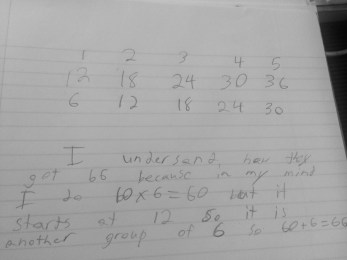 1 2 3 4 5
12 18 24 30 36
6 12 18 24 30
I undersand, how they
got 66 because in my mind
I do 10x6=60 but it
starts at 12 So it is
another group of 6 so 60+6=66